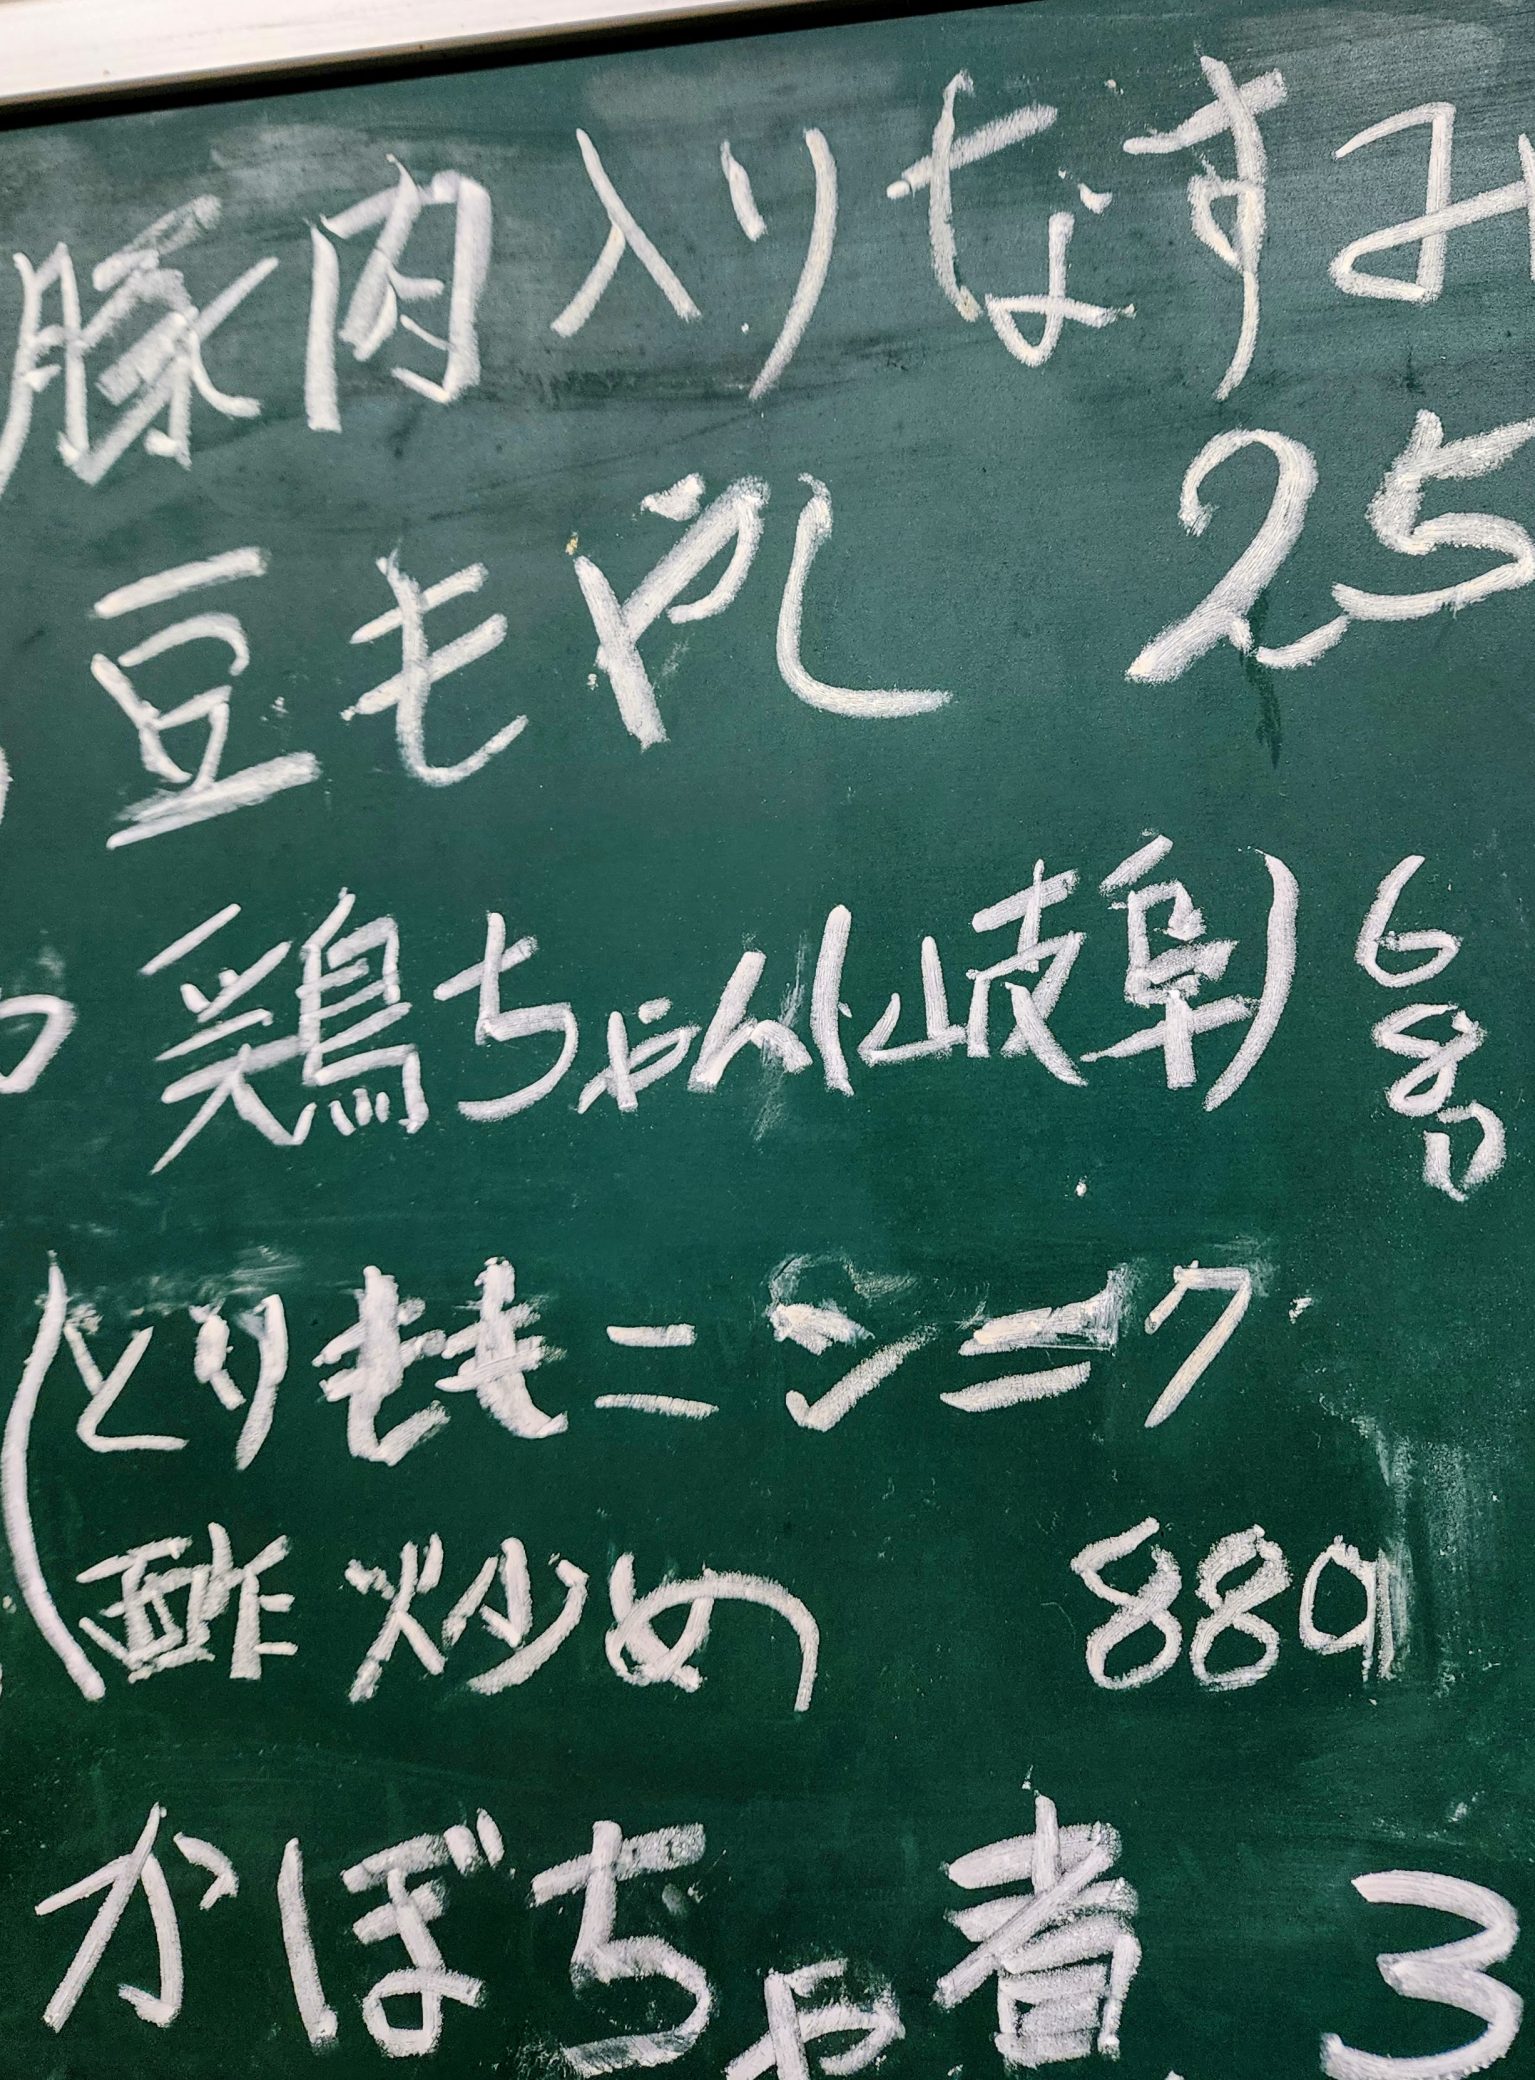 豚肉入りなすみ
豆もやし 25
鶏ちゃん(岐阜) 680
(とりももニンニク
酢炒め 880
かぼちゃ煮 3